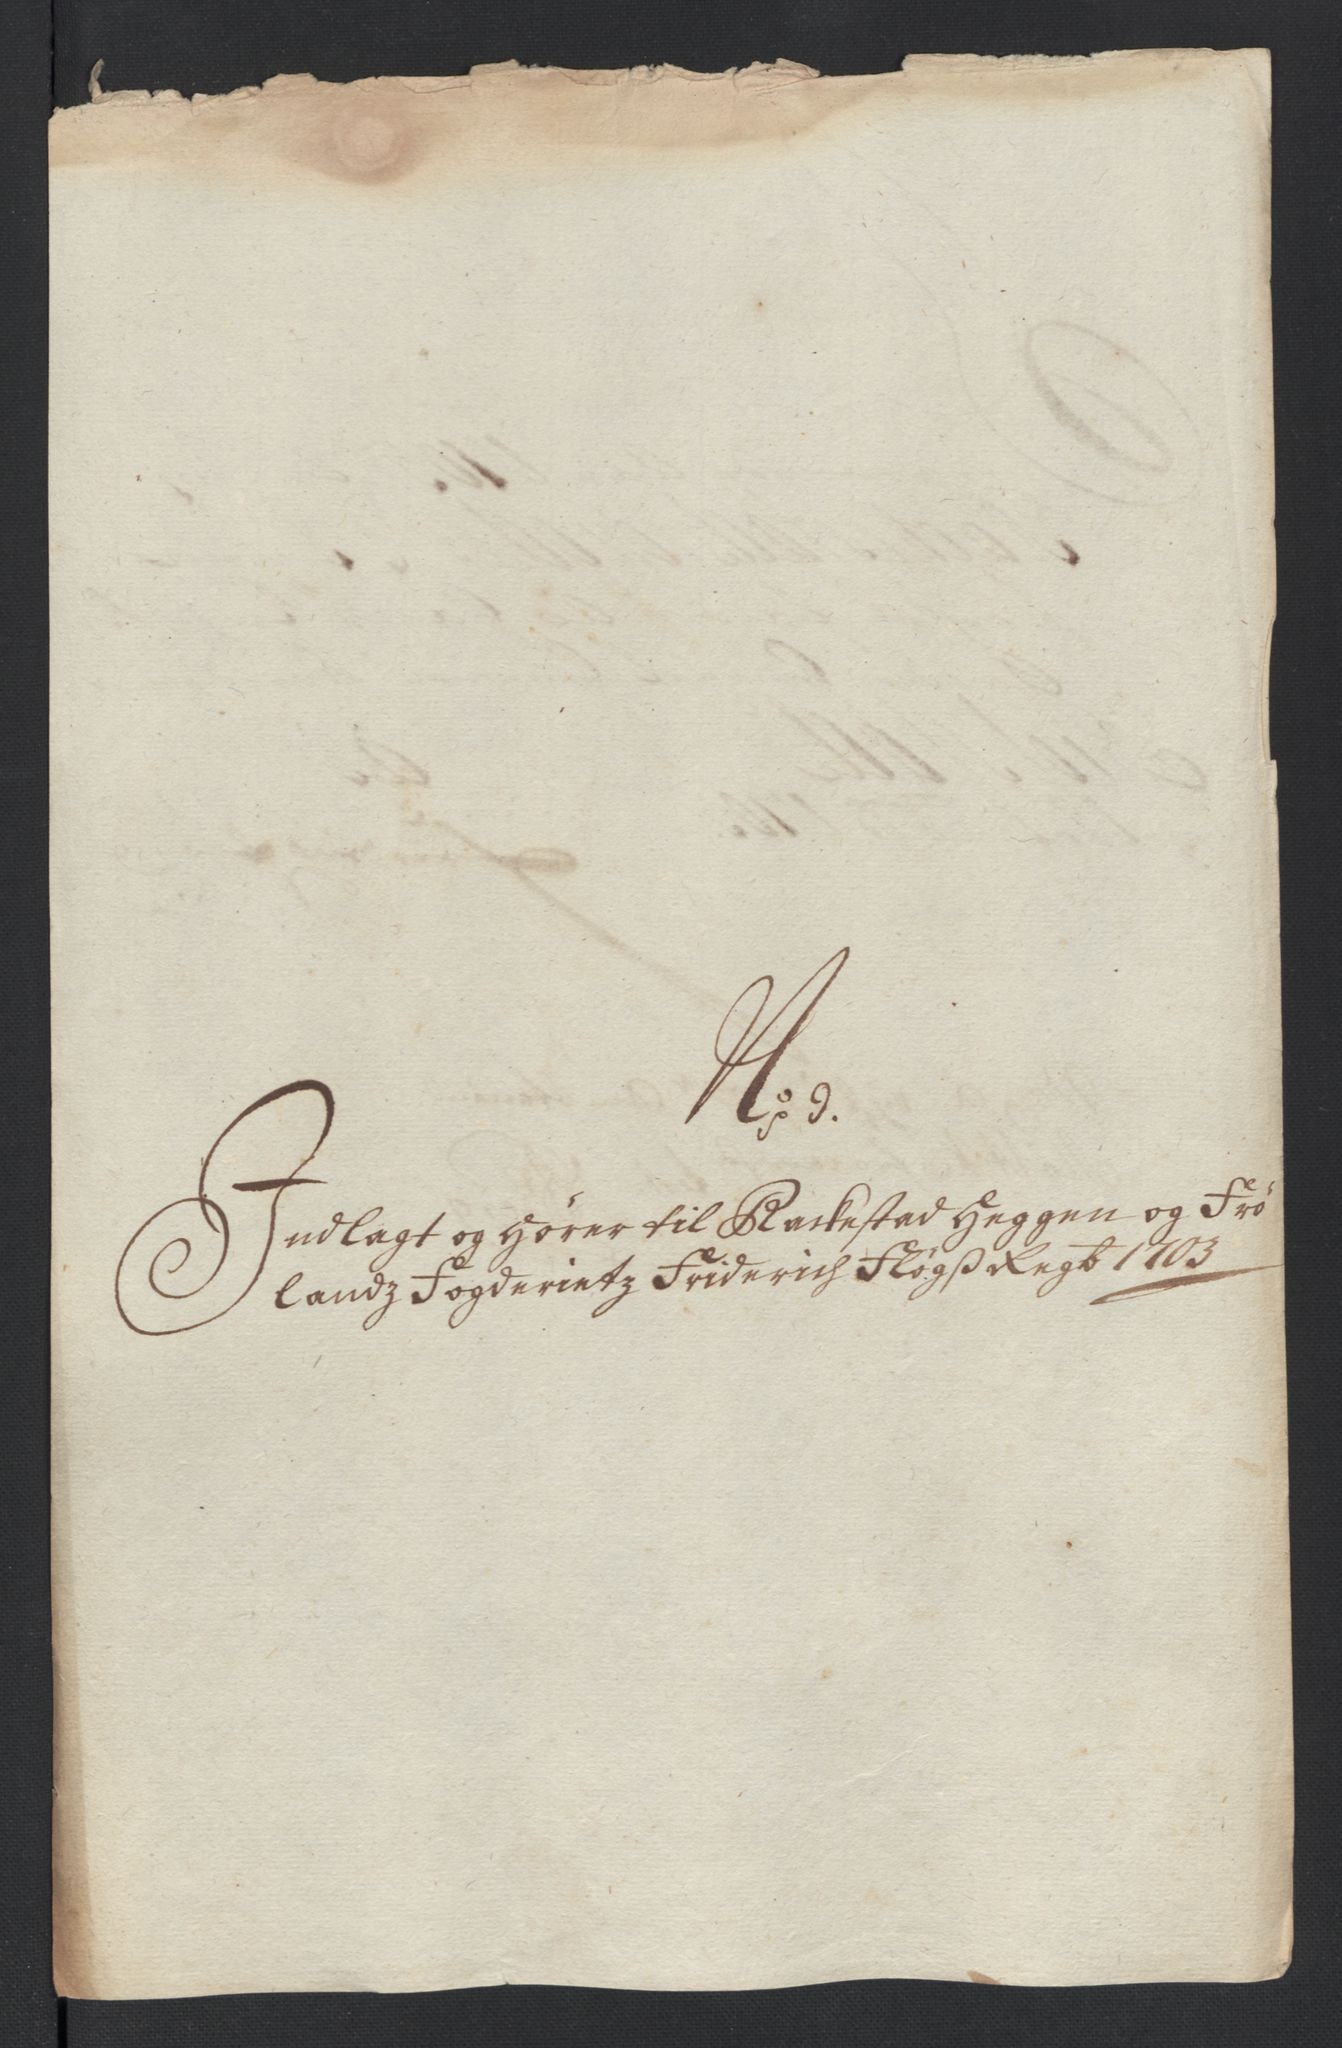 No 9.
Indlagt og hörer til Rackestad Heggen og Frö
landz Fogderietz Friderich Flögß Regb 1703